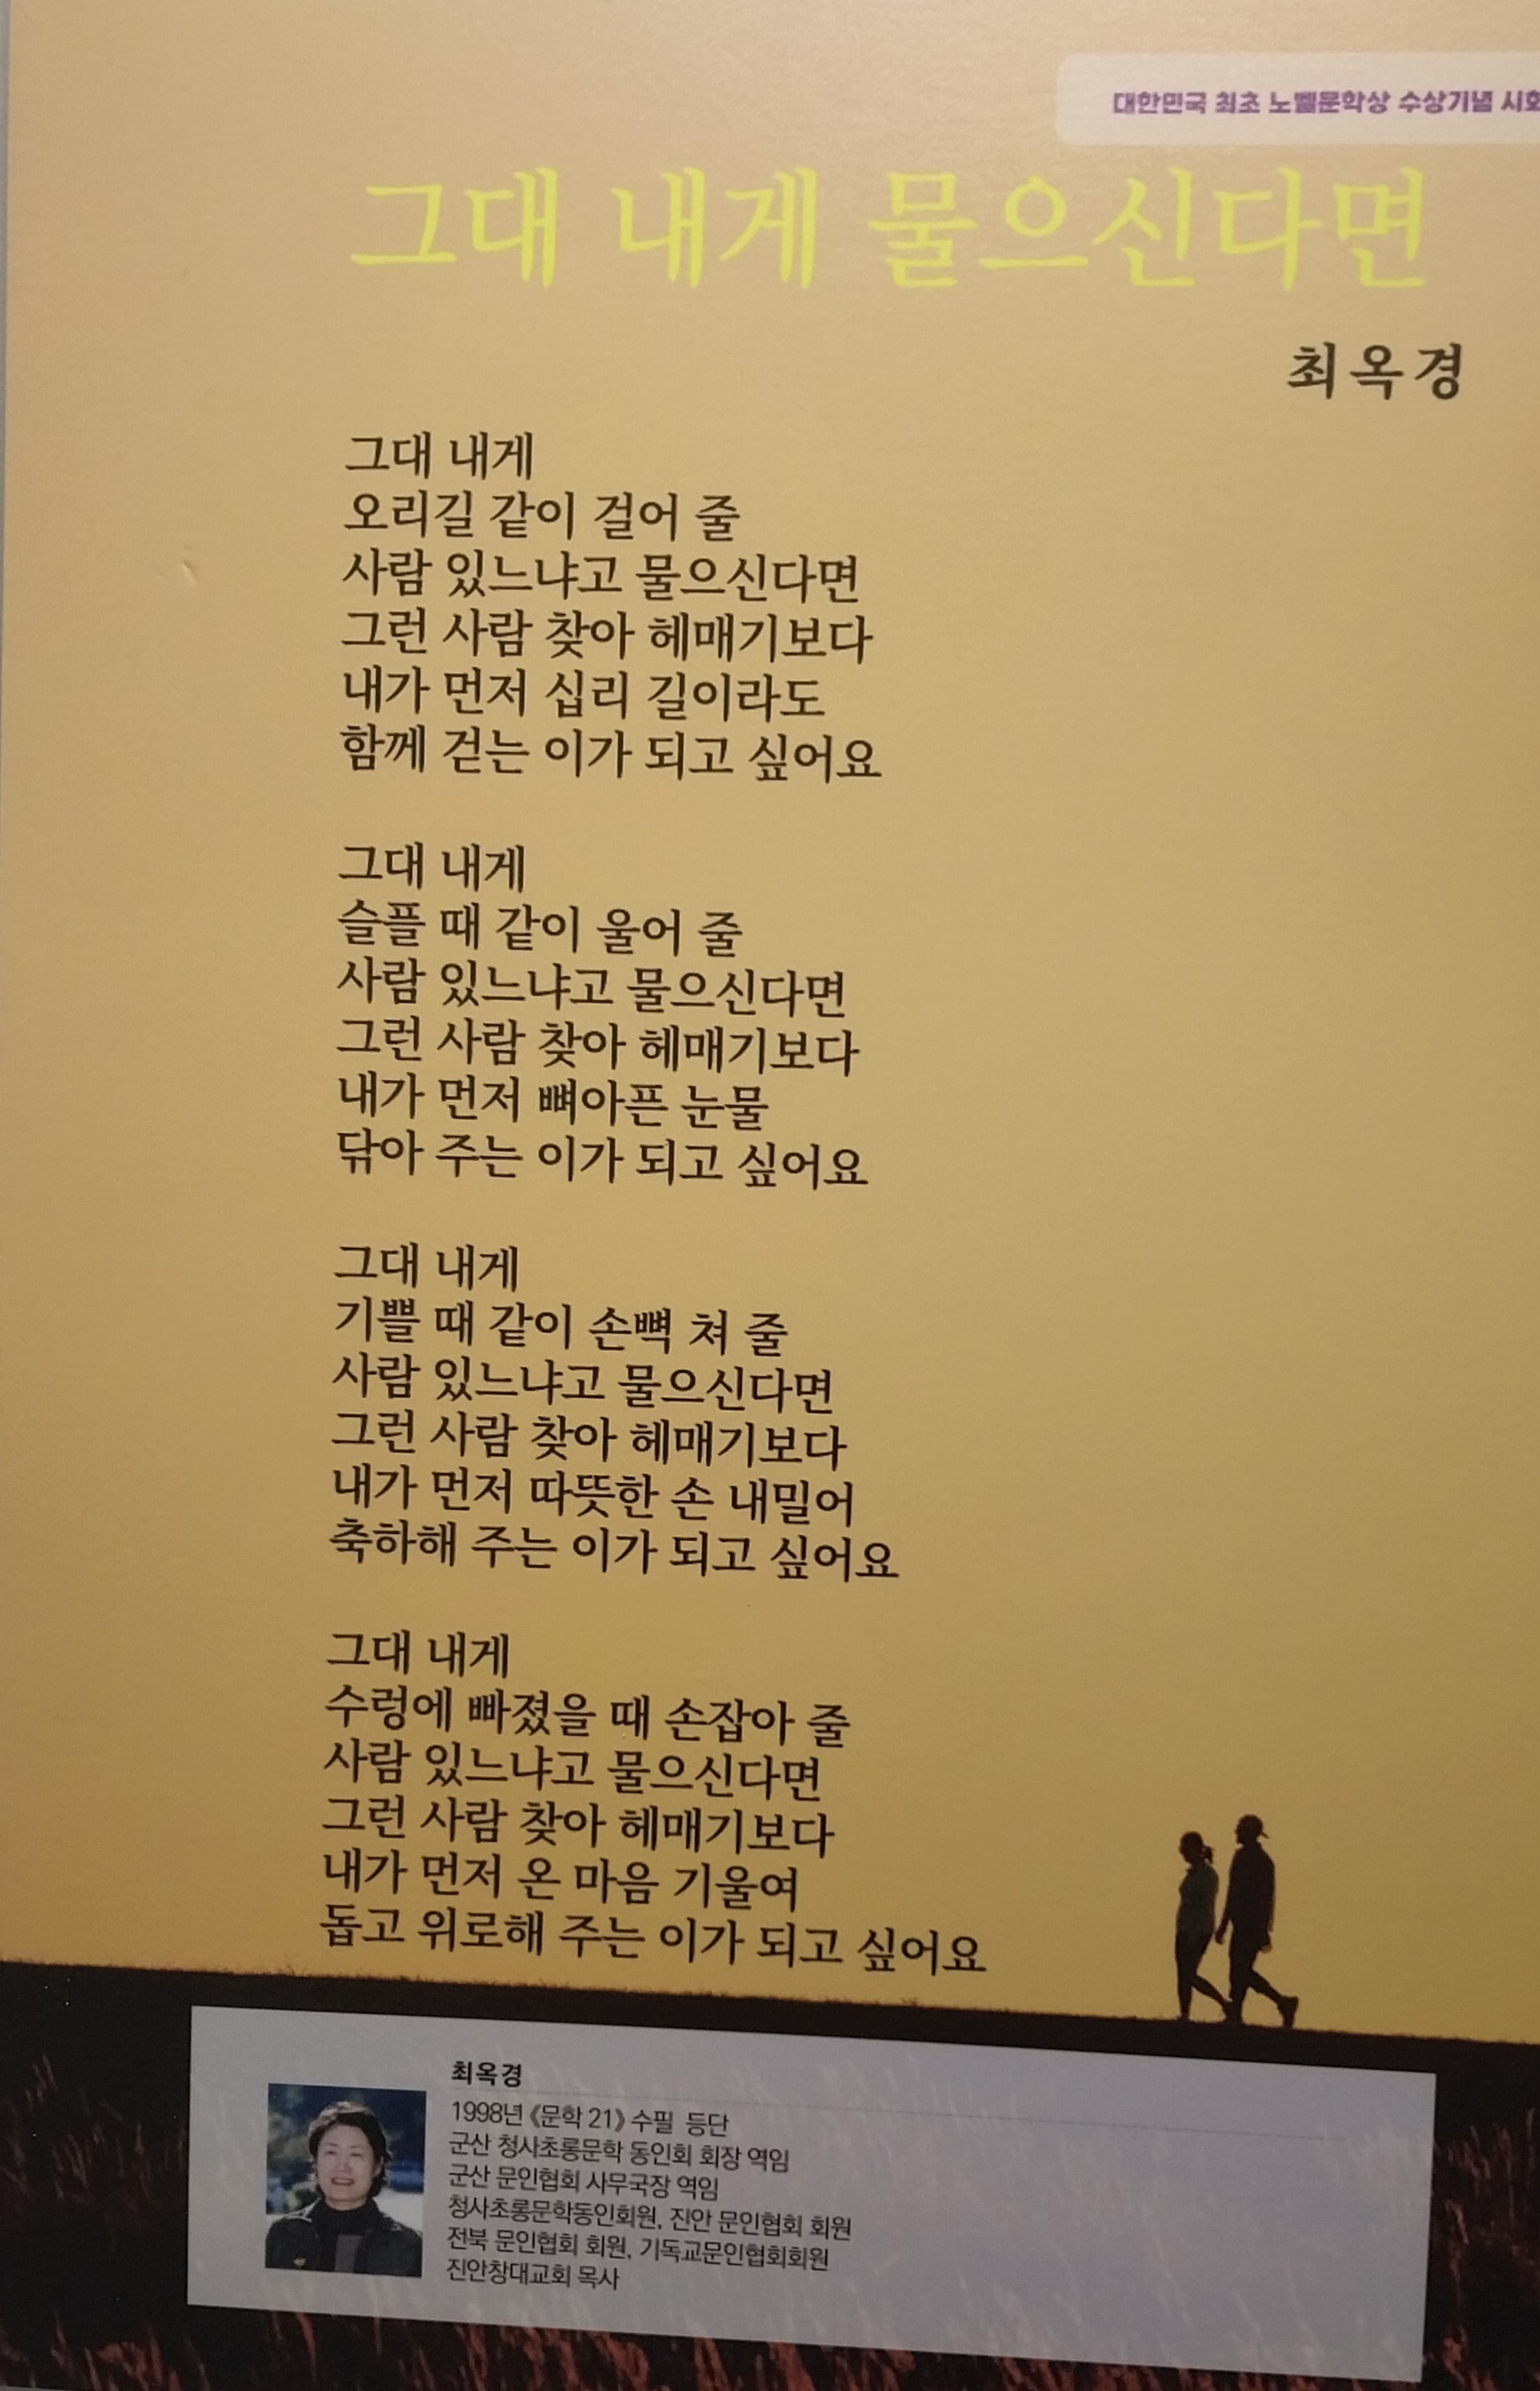 대한민국 최초 노벨문학상 수상기념
그대 내게 물으신다면
최옥경
그대 내게
오리길 같이 걸어 줄
사람 있느냐고 물으신다면
그런 사람 찾아 헤매기보다
내가 먼저 십리 길이라도
함께 걷는 이가 되고 싶어요
그대 내게
슬플 때 같이 울어 줄
사람 있느냐고 물으신다면
그런 사람 찾아 헤매기보다
내가 먼저 뼈아픈 눈물
닦아 주는 이가 되고 싶어요
그대 내게
기쁠 때 같이 손뼉 쳐 줄
사람 있느냐고 물으신다면
그런 사람 찾아 헤매기보다
내가 먼저 따뜻한 손 내밀어
축하해 주는 이가 되고 싶어요
그대 내게
수렁에 빠졌을 때 손잡아 줄
사람 있느냐고 물으신다면
그런 사람 찾아 헤매기보다
내가 먼저 온 마음 기울여
돕고 위로해 주는 이가 되고 싶어요
최옥경
1998년 《문학 21》 수필 등단
군산 청사초롱문학 동인회 회장 역임
군산 문인협회 사무국장 역임
청사초롱문학동인회원, 진안 문인협회 회원
전북 문인협회 회원, 기독교문인협회회원
진안창대교회 목사